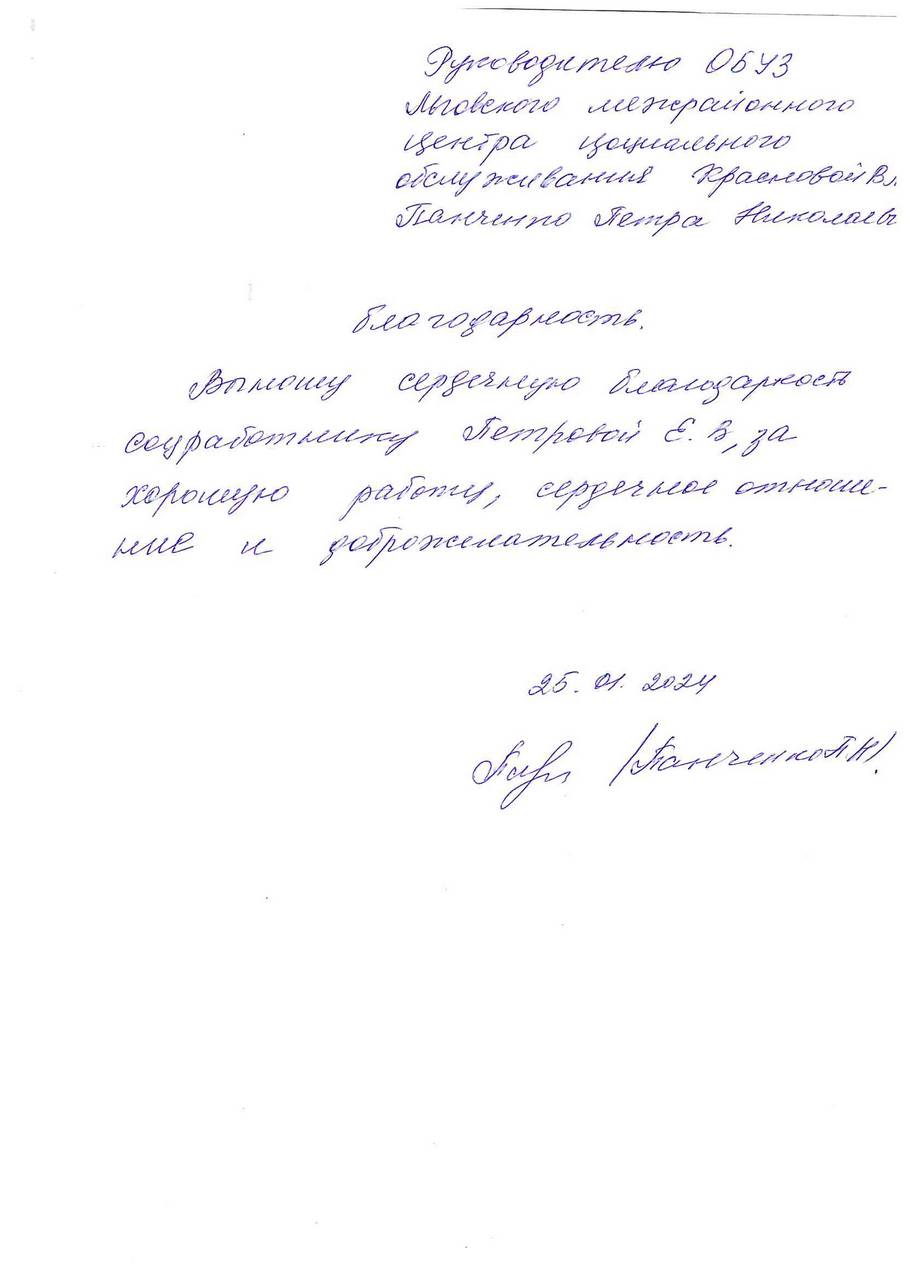 Руководителю ОБУЗ
Льговского межрайонного
центра цоциального
обслуживания Красновой В.
Панченко Петра Николаевич
благодарность.
Выношу сердечную благодарность
соцработнику Петровой Е. В, за
хорошую работу, сердечное отноше-
ние и доброжелательность.
25. 01. 2024
/Панченко П Н/.